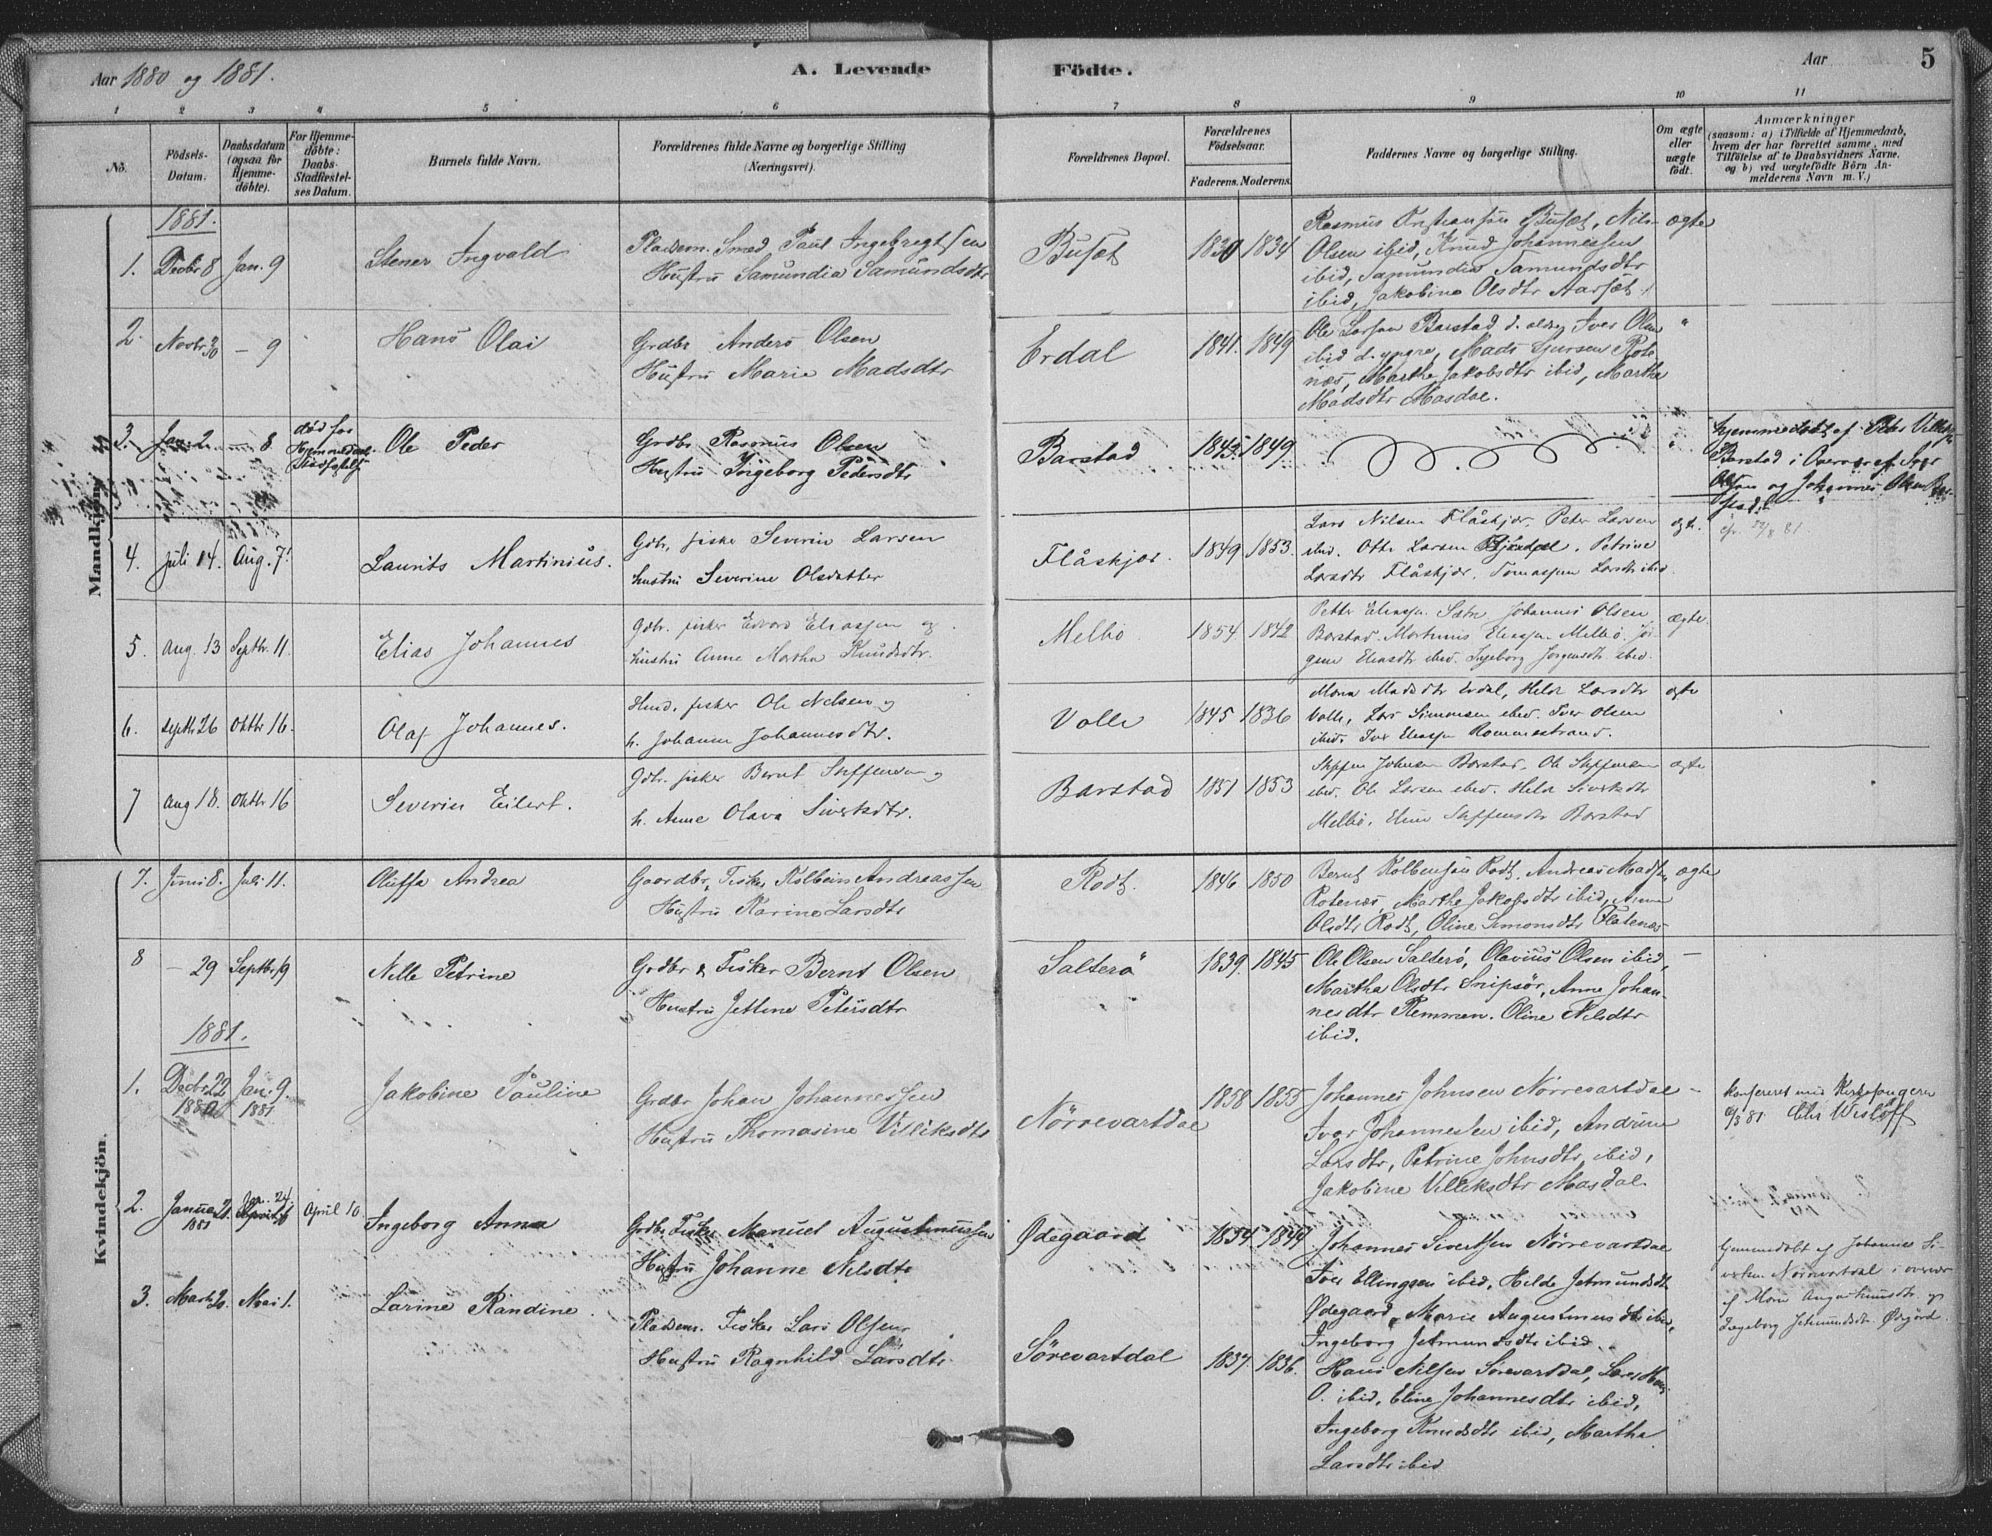 Aar 1880 og 1881.
A. Levende
Födte.
Aar
5
1 2 3 4 5 6 7 8 9 10 11
No.
Födsels-Datum.
Daabsdatum (ogsaa for Hjemme-döbte).
For Hjemme-döbte: Daabs-Stadfæstel-ses Datum.
Barnets fulde Navn.
Forældrenes fulde Navne og borgerlige Stilling (Næringsvei).
Forældrenes Bopæl.
Forældrenes Födselsaar.
Faderens. Moderens.
Faddernes Navne og borgerlige Stilling.
Om ægte eller uægte födt.
Anmærkninger
(saasom: a) i Tilfælde af Hjemmedaab, hvem der har forrettet samme, med Tilföielse af to Daabsvidners Navne, og b) ved uægtefödte Börn An-melderens Navn m. V.)
Mandkjön.
1881.
1. Decbr 8 Jan. 9
Stener Ingvald
Pladsm. Smed Paul Ingebregtsen
Hustru Samundia Samundsdtr
Busæt
1830 1834
Rasmus Kristiansön Busæt, Nils
Olsen ibid, Knud Johannessen
ibid, Samundia Samundsdtr
ibid, Jakobine Olsdtr Aarsæt
ægte
2. Novbr 30 — 9
Hans Olai
Grdbr Anders Olsen
Hustru Marie Madsdtr
Erdal
1841. 1849
Ole Larsen Barstad d. ældre, Iver Olsen
ibid d. yngre, Mads Sjursen Rote
næs, Marthe Jakobsdtr ibid, Martha
Madsdtr Masdal.
"
3. Jan. 2 — 8
död før
Hjemmedaab
Stadfæstelse
Ole Peder
Grdbr Rasmus Olsen
Hustru Ingeborg Pedersdtr
Barstad
1845 1849
"
Hjemmedöbt af Peder Villiks
Barstad i Overvær af Iver
Olsen og Johannes Olsen Bar-
stad.
4. Juli 14. Aug. 7.
Laurits Martinius.
Gdbr. fisker Severin Larsen
hustru Severine Olsdatter
Flåskjær.
1849 1853.
Lars Nilsen Flåskjær. Peter Larsen
ibid. Otte Larsen. Petrine
Larsdtr Flåskjær. Tomasine Larsdtr ibid.
ægte.
5. Aug. 13 Septbr. 11.
Elias Johannes
Gdbr. fisker Edvard Eliassen og
hustru Anne Martha Knudsdtr.
Melbö
1854 1842
Petter Eliassen Sætre Johannes Olsen
Barstad. Martinus Eliassen Melbö. Jör
gine Eliasdtr ibid. Ingeborg Jørgensdtr ibid.
ægte.
6. septbr 26 Oktbr 16.
Olaf Johannes.
Husm. fisker Ole Nilsen og
h. Johanne Johannesdtr.
Volle
1845 1836
Maria Madsdtr Erdal, Hilda Larsdtr
Volle, Lars Simonsen ibid. Iver Olsen
ibid. Iver Eliassen Rommestrand.
ægte
7 aug 18. Oktbr 16
Severin Eilert.
Gdbr. fisker Bernt Steffensen og
h. Anne Olava Sivertsdtr.
Barstad
1851 1853
Steffen Johnsen Barstad, Ole Steffensen
ibid. Ole Larsen ibid. Hilda Sivertsdtr
Melbö. Elen Steffensdtr Barstad
ægte
Kvindekjön.
7. Juni 8. Juli 11.
Oluffa Andrea
Gaardbr, Fisker Kolbein Andreassen
Hustru Karine Larsdtr
Rodt.
1846 1850
Bernt Kolbensön Rodt, Andreas Madsen
Rotenæs, Marthe Jakobsdtr ibid, Anne
Olsdtr Rodt, Oline Simonsdtr Flatenæs
ægte
8 — 29 Septbr 19
Nelle Petrine
Grdbr & Fisker Bernt Olsen
Hustru Jettine Petersdtr
Salterö
1839. 1845
Ole Olsen Salterö, Olavius Olsen ibid,
Martha Olsdtr Snipsör, Anne Johan-
nesdtr Remmen. Oline Nilsdtr
ibid.
—
1881.
1. Decbr 22 1880 Jan. 9. 1881
Jakobine Pauline
Grdbr Johan Johannessen
Hustru Thomasine Villiksdtr
Nörrevartdal
1858 1855
Johannes Johnsen Nörrevartdal
Iver Johannessen ibid, Andrine
Larsdtr, Petrine Johnsdtr, ibid,
Jakobine Villiksdtr Masdal.
—
konfereret med Kirkesangeren
Chr Wislöff
2. Januar 21. 1881 Jan. 24. April 10.
Ingeborg Anna
Grdbr, Fisker Manuel Augustinussen
Hustru Johanne Nilsdtr
Ødegaard
1854 1849
Johannes Sivertsen Nörrevartdal
Iver Ellingsen ibid, Hilde Jetmundsdtr
Ødegaard, Marie Augustinusdtr ibid,
Ingeborg Jetmundsdtr ibid.
Hjemmedöbt af Johannes Si-
vertsen Nörrevartdal i overvær
af Marie Augustinusdtr og
Ingeborg Jetmundsdtr Ödegård.
3. Marts 20. Mai 1.
Larine Randine.
Pladsm. Fisker Lars Olsen
Hustru Ragnhild Larsdtr
Sörevartdal
1837. 1836.
Hans Nilsen Sörevartdal, Lars Hans
O. ibid, Eline Johannesdtr ibid,
Ingeborg Knudsdtr ibid, Martha
Larsdtr ibid